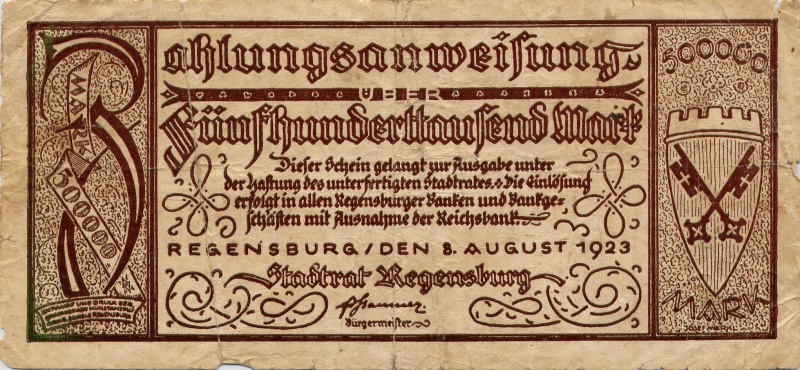 Zahlungsanweisung
ÜBER
Fünfhunderttausend Mark
Dieser Schein gelangt zur Ausgabe unter
der Haftung des unterfertigten Stadtrates. Die Einlösung
erfolgt in allen Regensburger Banken und Bankge=
schäften mit Ausnahme der Reichsbank
REGENSBURG / DEN 8. AUGUST 1923
Stadtrat Regensburg
Bürgermeister
MARK
500000
ENTWURF UND DRUCK DER
500000
MARK